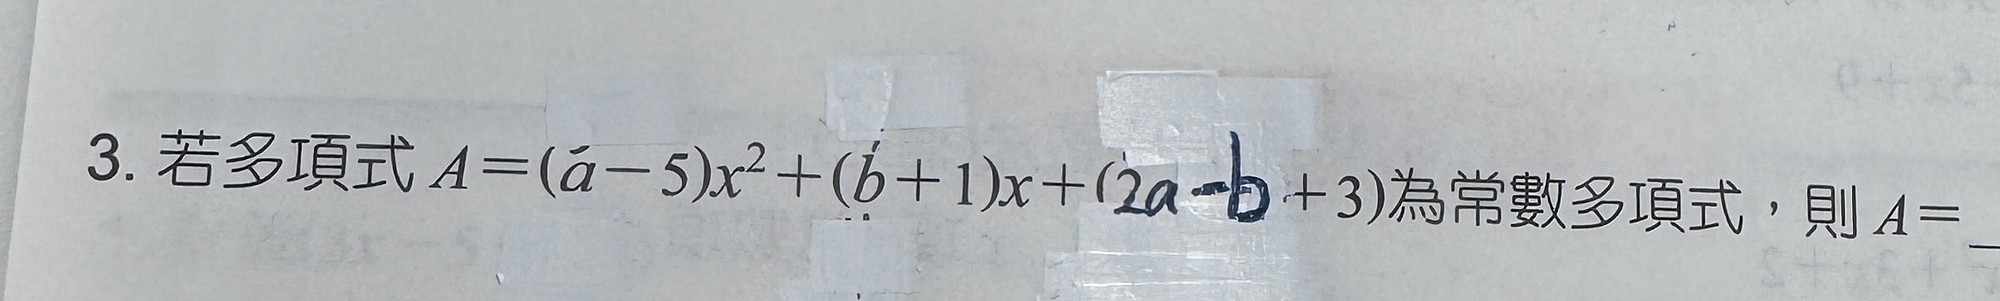 3. 若多項式 A＝(a－5)x²＋(b＋1)x＋(2a－b＋3)為常數多項式，則 A＝